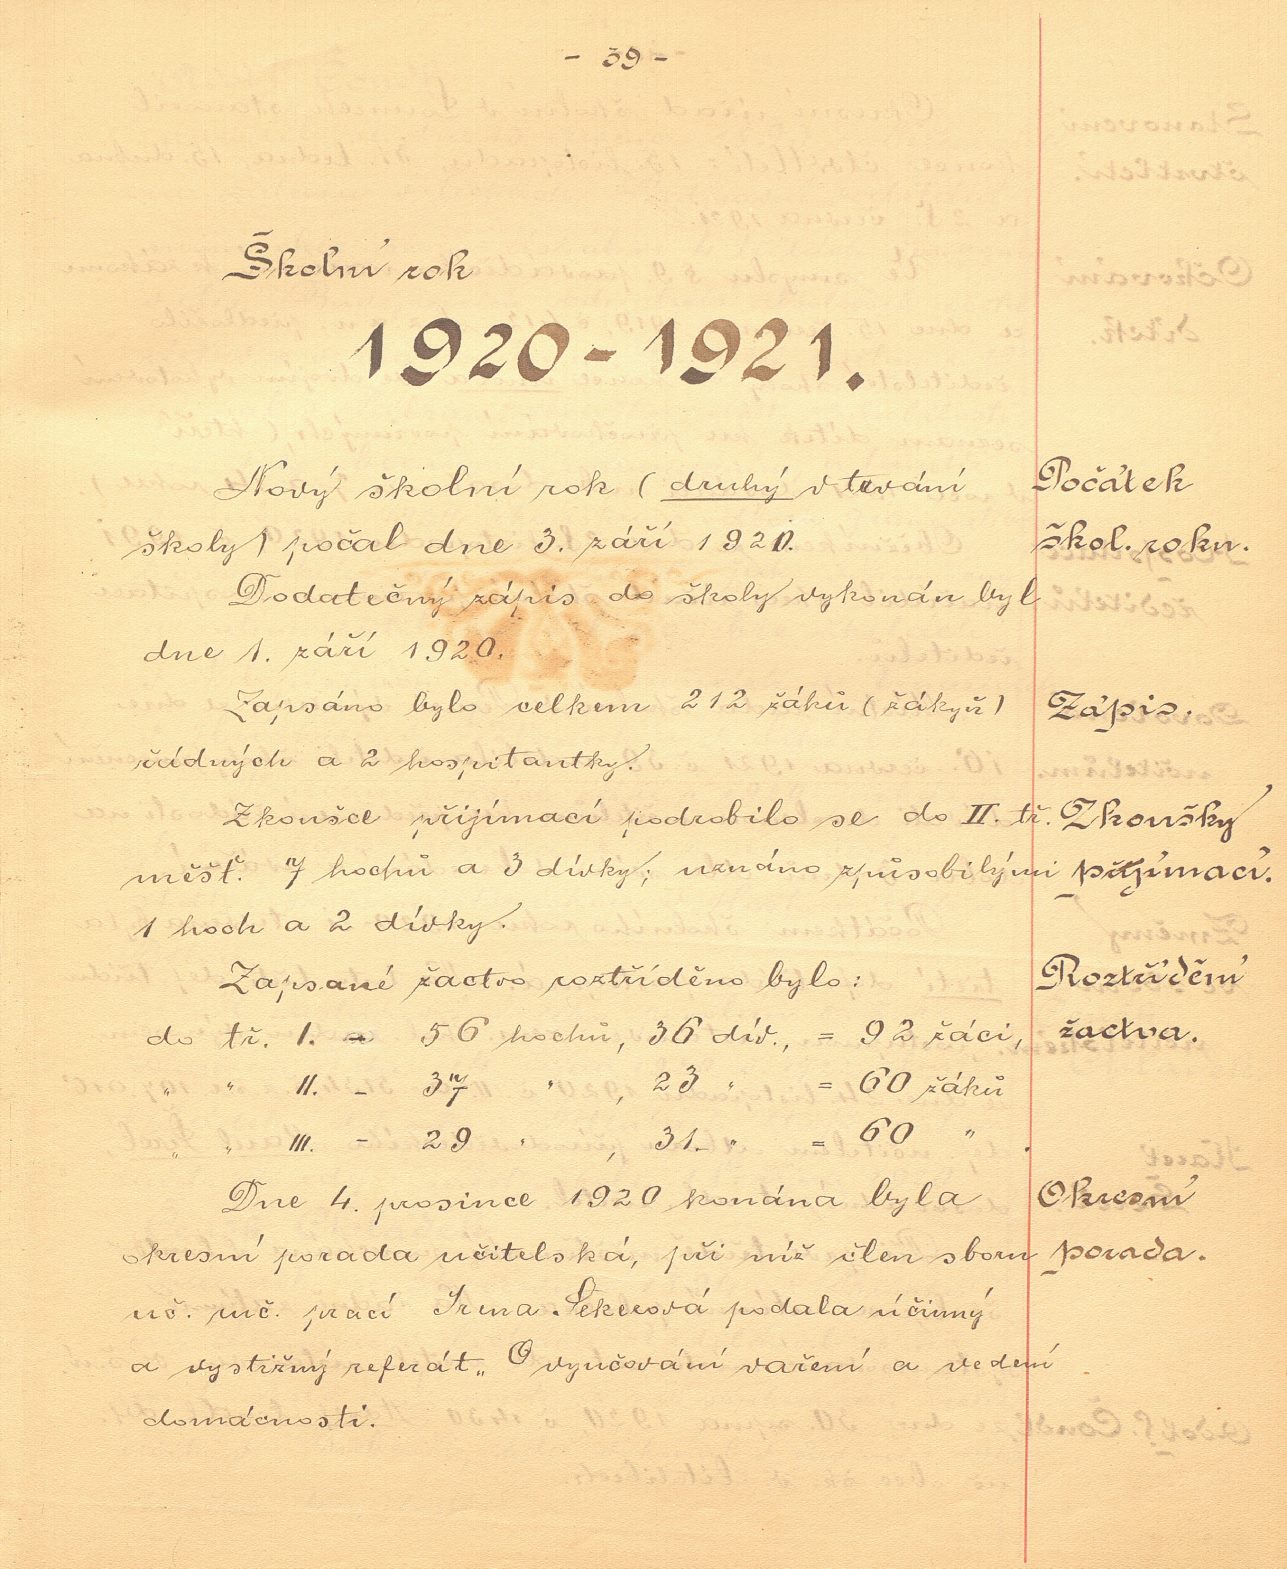 - 39 -
Školní rok
1920-1921.
Nový školní rok ( druhý v trvání
Počátek
školy) počal dne 3. září 1920.
škol. roku.
Dodatečný zápis do školy vykonán byl
dne 1. září 1920.
Zapsáno bylo celkem 212 žáků ( žákyň )
Zápis.
řádných a 2 hospitantky.
Zkoušce přijímací podrobilo se do II. tř.
Zkoušky
měšť. 7 hochů a 3 dívky; uznáno způsobilými
přijímací.
1 hoch a 2 dívky.
Zapsané žactvo roztříděno bylo:
Roztřídění
do tř. I. - 56 hochů, 36 dív., = 92 žáci,
žactva.
„ II. - 37 „ , 23 „ = 60 žáků
„ „ III. - 29 „ , 31 „ = 60 „ .
Dne 4. prosince 1920 konána byla
Okresní
okresní porada učitelská, při níž člen sboru
porada.
uč. ruč. prací Irma Sekerová podala účinný
a vystižný referát „ O vyučování vaření a vedení
domácnosti.